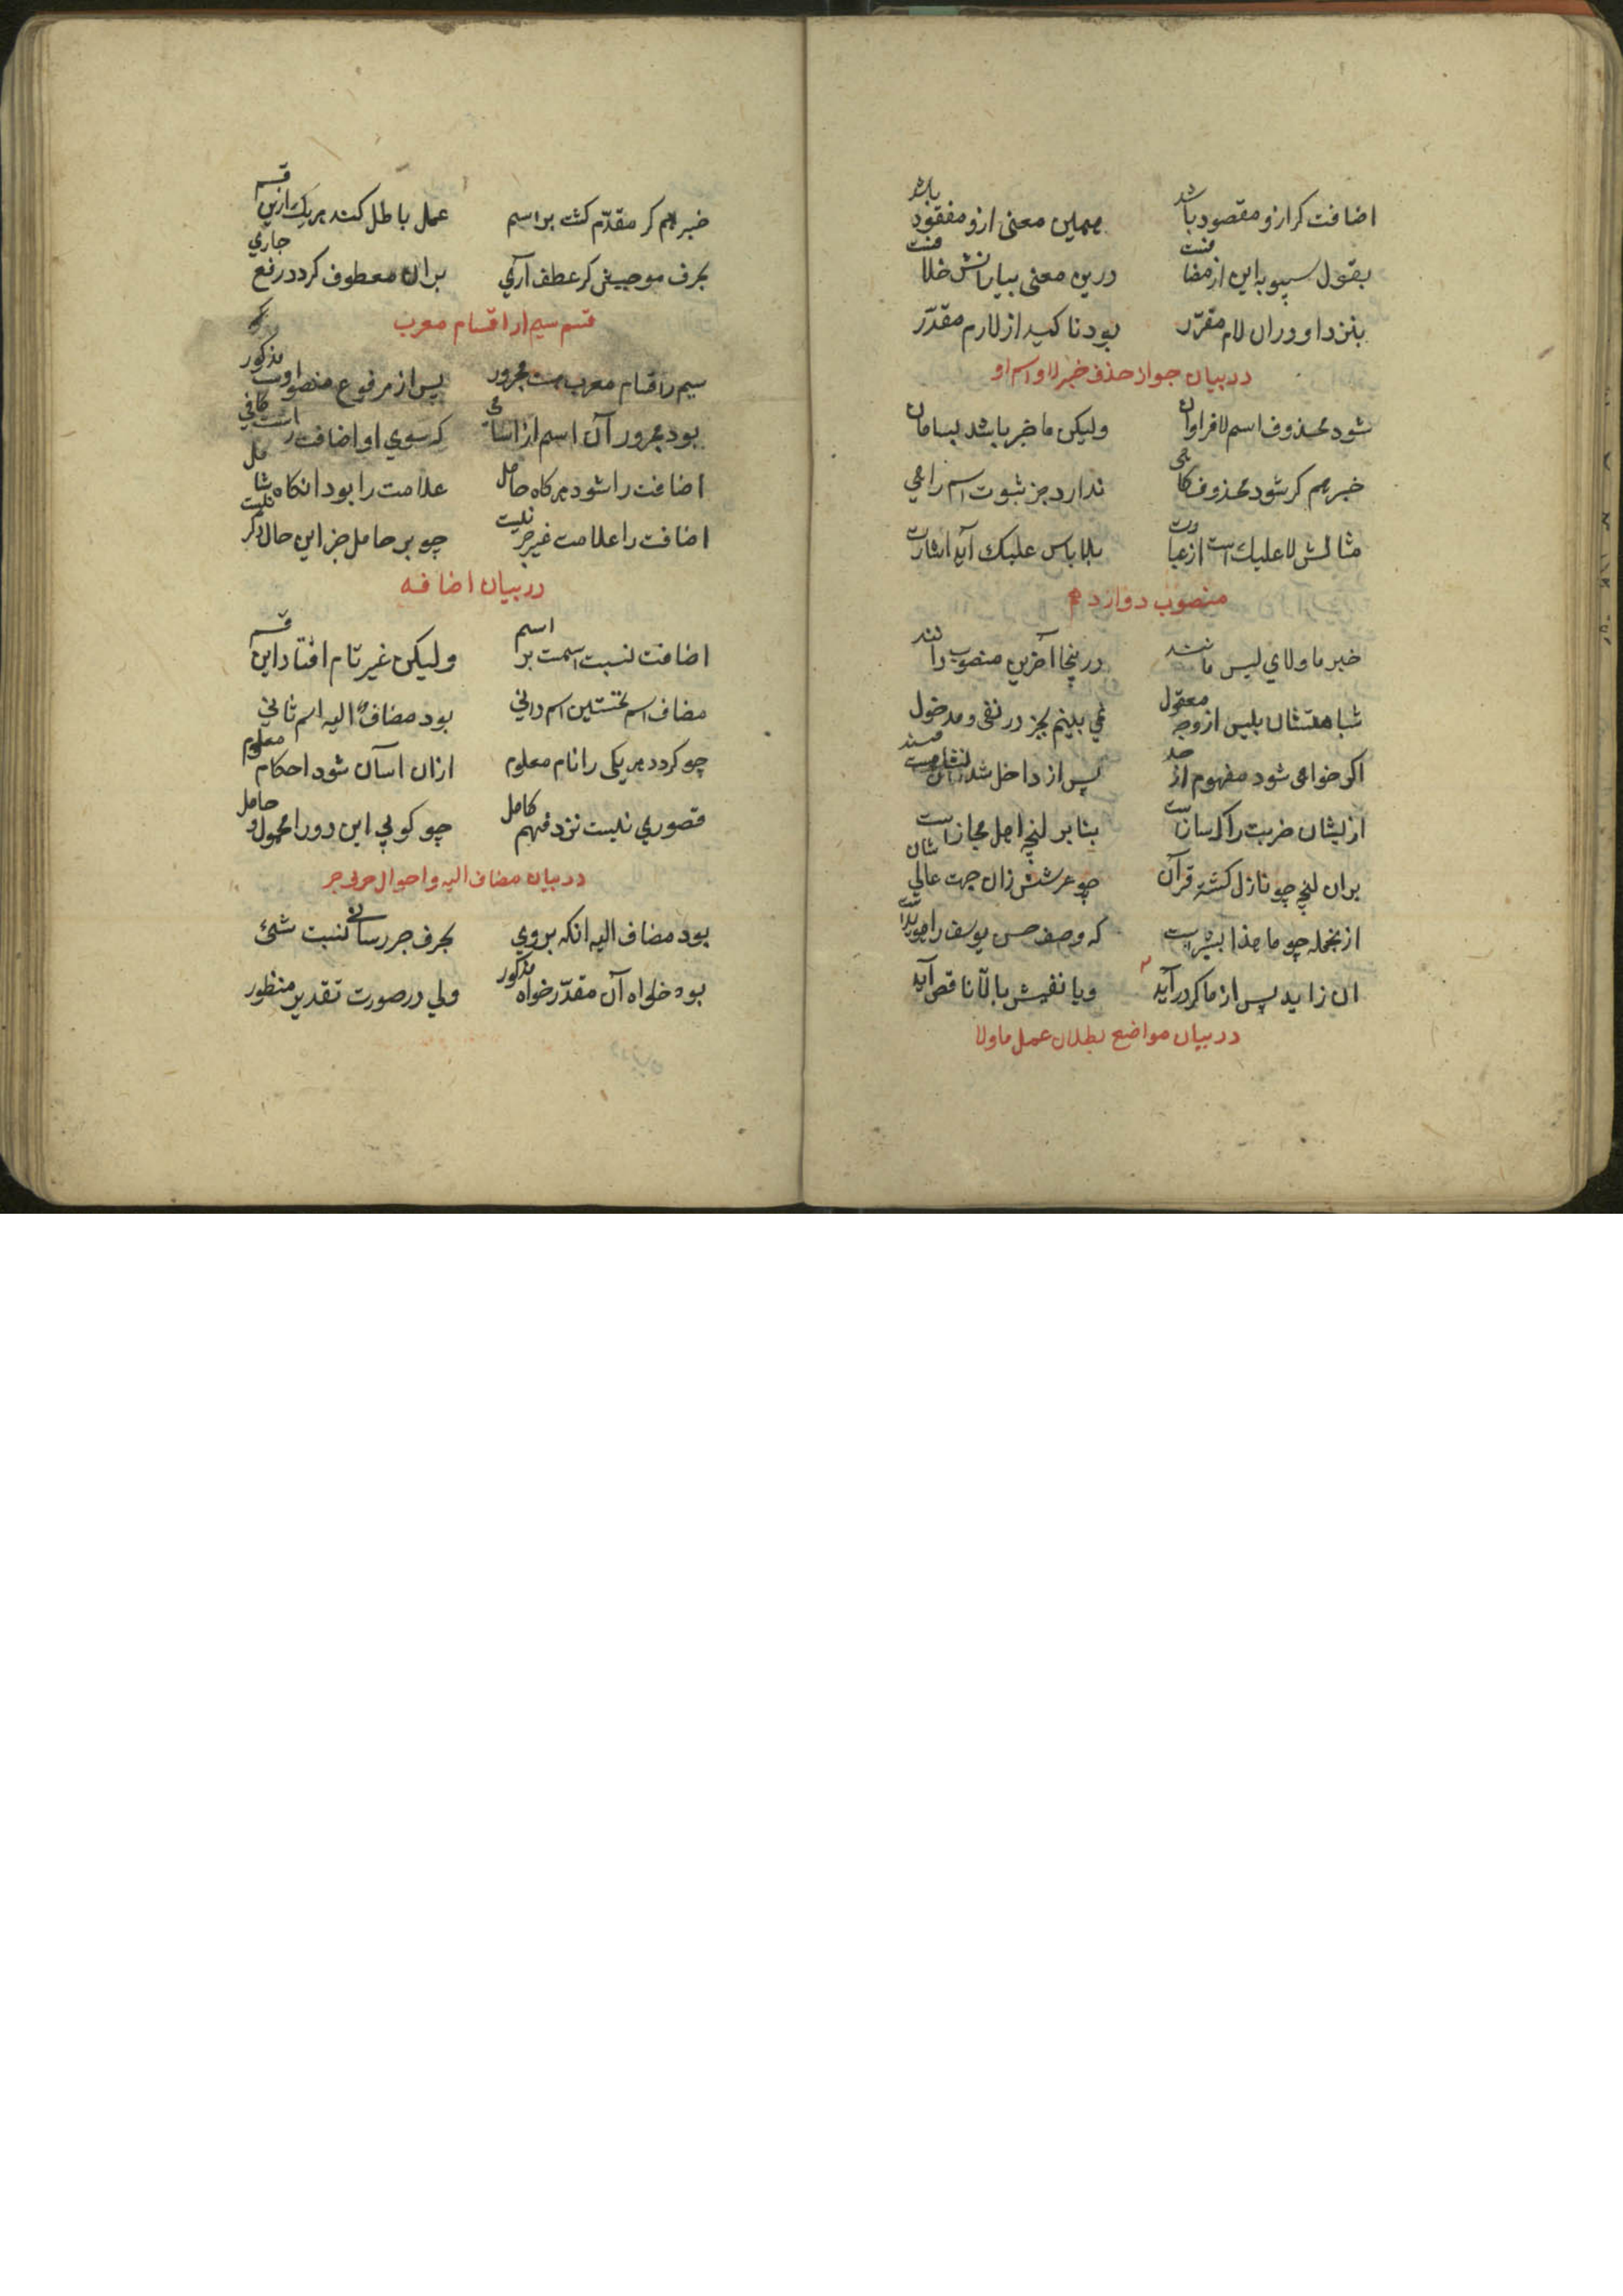 اضافت کر ازو مقصود باشد همین معنی ازو مفقود باشد
بقول سیبویه این از مضافت درین معنی بیانش خلافت
بنزد او دران لام مقرّر بود تاکید از لازم مقدّر
در بیان جواز حذف خبر لا و اسم او
شود محذوف اسم لا فراوان ولیکن ما خبر باشد بسامان
خبر هم کر شود محذوف کاهی ندارد جز ثبوت اسم راهی
مثالش لا علیک است از عبارت بلا باس علیک آید اشارت
منصوب دوازدهم
خبر ما و لای لیس مانند درینجا آخرین منصوب دانند
شباهتشان بلیس از وجه معقول نمی بینم بجز در نفی و مدخول
اکر خواهی شود مفهوم از حد پس از داخل شدن
ازیشان ضربت را کارسازیست بنابر لغت اهل مجازیست
بران لغت چو نازل کشته قرآن چو عرشش زان جهت عالی شان
ازینجمله چو ما هذا بشراست که وصف حسن یوسف را هویداست
ان زاید پس از ما کر درآید و یا نفیش بالّا ناقص آید
در بیان مواضع بطلان عمل ما و لا
خبر هم کر مقدّم کشت بر اسم عمل باطل کند هریک ازین قسم
بحرف موجبش کر عطف آری بران معطوف کردد رفع جاری
قسم سیم از اقسام معرب
سیم ز اقسام معرب هست مجرور پس از مرفوع و منصوبست مذکور
بود مجرور آن اسم از اسامی که سوی او اضافت راست کافی
اضافت را شود هر کاه حامل علامت را بود انکاه شامل
اضافت را علامت غیر جر نیست چو بر حامل جز این حال دکر نیست
در بیان اضافه
اضافت نسبت اسمت بر اسم ولیکن غیر تام افتاد این قسم
مضاف اسم نخستین اسم دانی بود مضاف الیه اسم ثانی
چو کردد هر یکی را نام معلوم ازان آسان شود احکام معلوم
قصوری نیست نزد فهم کامل چو کویی این دو را محمول و حامل
در بیان مضاف الیه و احوال حرف جر
بود مضاف الیه انکه بروی بحرف جر رسانی نسبت شیٔ
بود خواه آن مقدّر خواه مذکور ولی در صورت تقدیر منظور